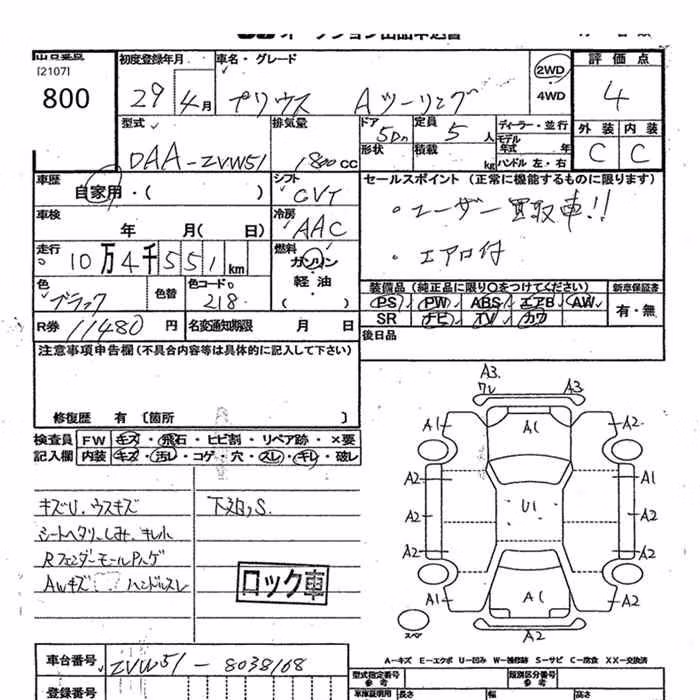 オークション出品申込書
出品番号
[2107]
800
初度登録年月
29年 4月
車名・グレード
プリウス Aツーリング
2WD
4WD
評価点
4
外装 内装
C C
型式
DAA-ZVW51
排気量
1800cc
ドア 5Dr
形状
定員 5人
積載 kg
ディーラー・並行
モデル年式 年
ハンドル 左・右
車歴
自家用・( )
シフト
CVT
セールスポイント (正常に機能するものに限ります)
・ユーザー買取車!!
・エアロ付
車検
年 月( 日)
冷房
AAC
走行
10万4千551km
燃料
ガソリン
軽油
( )
色
ブラック
色替
色コード
218
装備品(純正品に限り○をつけてください)
PS PW ABS エアB AW
SR ナビ TV カワ
新車保証書
有・無
R券 11480円
名変通知期限 月 日
後日品
注意事項申告欄(不具合内容等は具体的に記入して下さい)
修復歴 有 〔箇所 〕
検査員記入欄
FW キズ・飛石・ヒビ割・リペア跡・×要
内装 キズ・汚レ・コゲ・穴・スレ・キレ・破レ
キズU.ウスキズ
シートヘタリ.しみ.キレ小
RフェンダーモールPハゲ
AWキズ ハンドルスレ
下廻りS.
ロック車
A3.
ワレ
A3
A1 A1 A2
A2 A1
A2 U1 A2
A2 A2
A1 A1 A2
スペア
A2
A-キズ E-エクボ U-凹み W-補修跡 S-サビ C-腐食 XX-交換済
車台番号
ZVW51-8038168
登録番号
型式指定番号
参考
類別区分番号
参考
車庫証明用
参考
長さ 幅 高さ